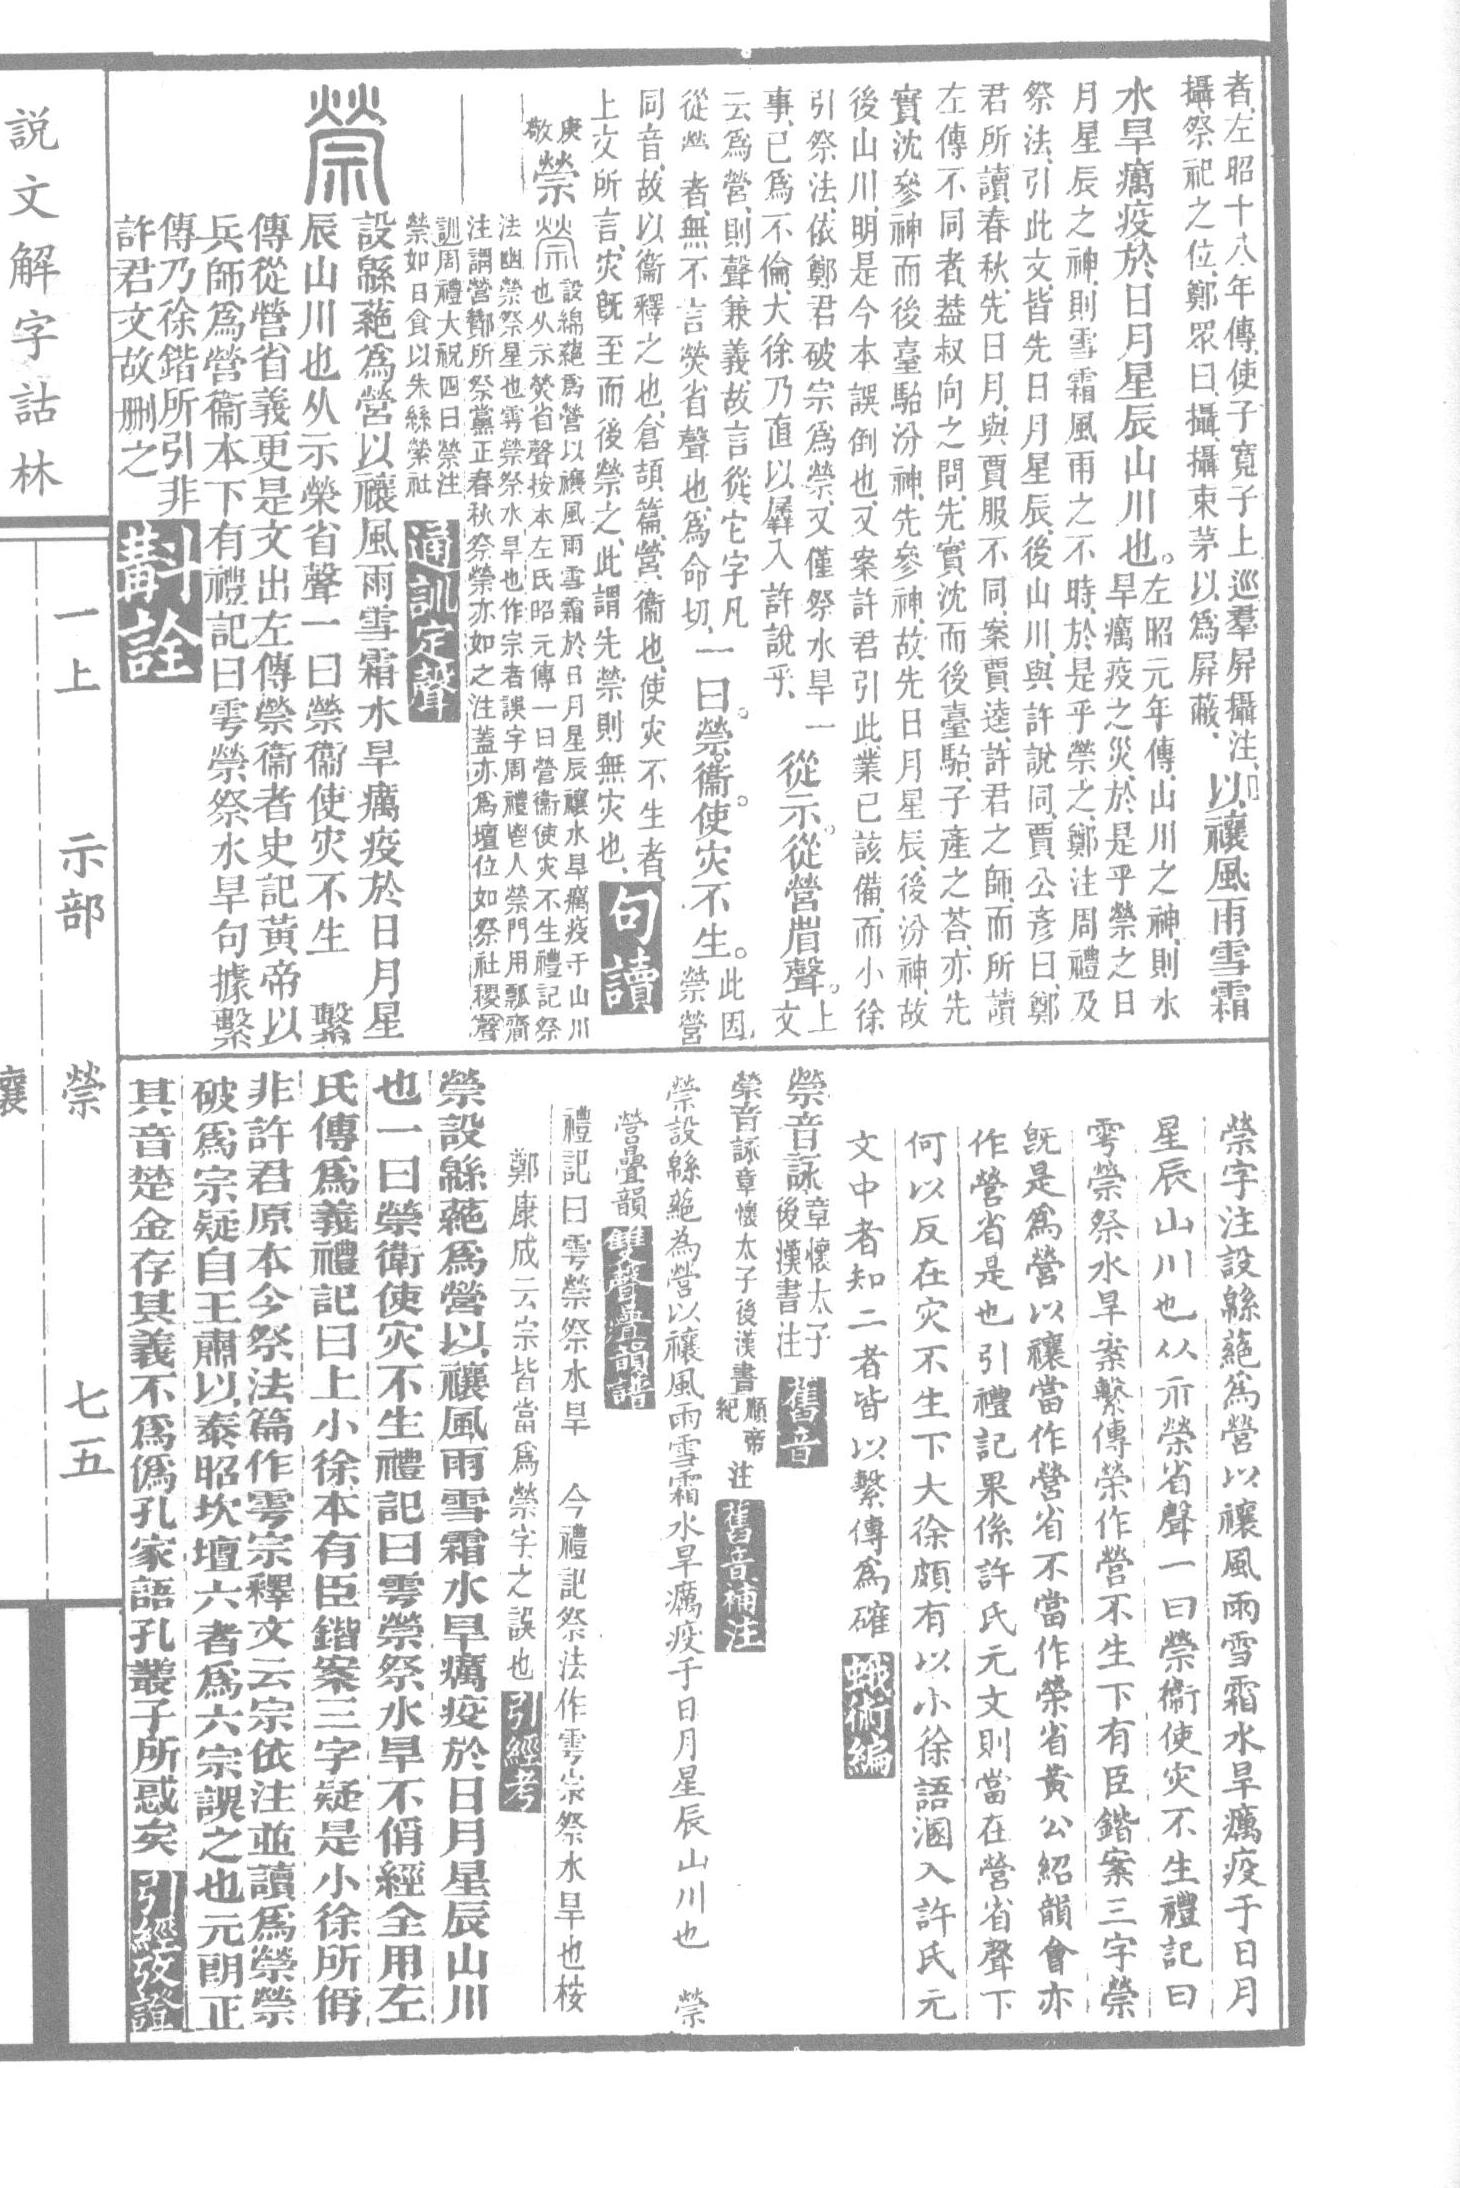 者、左昭十八年傳、使子寬子上巡羣屏攝、注、以禳風雨雪霜
攝祭祀之位、鄭眾曰、攝、攝束茅以爲屏蔽、
水旱癘疫於日月星辰山川也。左昭元年傳、山川之神、則水旱癘疫之災、於是乎禜之、日
月星辰之神、則雪霜風雨之不時、於是乎禜之、鄭注周禮及
祭法、引此文、皆先日月星辰、後山川、與許說同、賈公彥曰、鄭
君所讀春秋、先日月、與賈服不同、案賈逵、許君之師、而所讀
左傳不同者、葢叔向之問、先實沈而後臺駘、子產之荅、亦先
實沈參神而後臺駘汾神、先參神、故先日月星辰、後汾神、故
後山川、明是今本誤倒也、又案許君引此、業已該備、而小徐
引祭法、依鄭君破宗爲禜、又僅祭水旱一
事、已爲不倫、大徐乃直以羼入許說乎、從示從營省聲。上文
云爲營、則聲兼義、故言從、它字凡
從𤇾者、無不言熒省聲也、爲命切、一曰禜。衞使灾不生。此因禜營
同音、故以衞釋之也、倉頡篇、營、衞也、使灾不生者、
上文所言、灾旣至而後禜之、此謂先禜則無灾也、句讀
庚敬禜 設綿蕝爲營以禳風雨雪霜於日月星辰禳水旱癘疫于山川
也从示熒省聲按本左氏昭元傳一曰營衞使灾不生禮記祭
法幽禜祭星也雩禜祭水旱也作宗者誤字周禮鬯人禜門用瓢齎
注謂營酇所祭黨正春秋祭禜亦如之注蓋亦爲壇位如祭社稷〔聲
訓〕周禮大祝四曰禜注
禜如日食以朱絲縈社 通訓定聲
禜 設緜蕝爲營以禳風雨雪霜水旱癘疫於日月星
辰山川也从示榮省聲一曰禜衞使灾不生 繫
傳從營省義更是文出左傳禜衞者史記黃帝以
兵師爲營衞本下有禮記曰雩禜祭水旱句據繫
傳乃徐鍇所引非
許君文故刪之 斠詮
禜字注設緜蕝爲營以禳風雨雪霜水旱癘疫于日月
星辰山川也从示榮省聲一曰禜衞使灾不生禮記曰
雩禜祭水旱案繫傳榮作營不生下有臣鍇案三字禜
旣是爲營以禳當作營省不當作榮省黃公紹韻會亦
作營省是也引禮記果係許氏元文則當在營省聲下
何以反在灾不生下大徐頗有以小徐語溷入許氏元
文中者知二者皆以繫傳爲確 蛾術編
禜音詠章懷太子後漢書注 舊音
禜音詠章懷太子後漢書順帝紀注 舊音補注
禜設緜蕝為營以禳風雨雪霜水旱癘疫于日月星辰山川也 禜
營疊韻 雙聲疊韻譜
禮記曰雩禜祭水旱 今禮記祭法作雩宗祭水旱也桉
鄭康成云宗皆當爲禜字之誤也 引經考
禜設緜蕝爲營以禳風雨雪霜水旱癘疫於日月星辰山川
也一曰禜衛使灾不生禮記曰雩禜祭水旱不偁經全用左
氏傳爲義禮記曰上小徐本有臣鍇案三字疑是小徐所偁
非許君原本今祭法篇作雩宗釋文云宗依注並讀爲禜禜
破爲宗疑自王肅以泰昭坎壇六者爲六宗誤之也元朗正
其音楚金存其義不爲僞孔家語孔叢子所惑矣 引經攷證
說文解字詁林
一上 示部 禜 七五